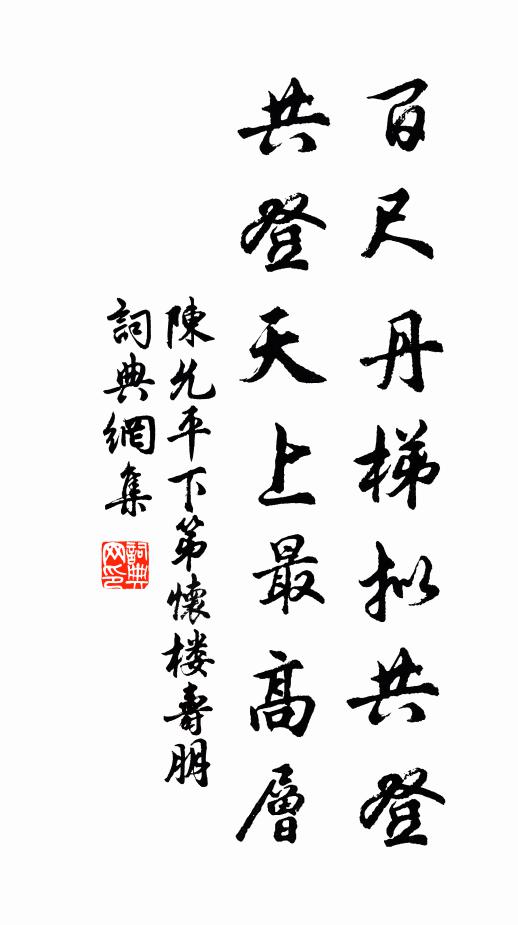 百尺丹梯拟共登
共登天上最高層
陳允平下第懷楼壽朋
詞典網集
詞典
网印